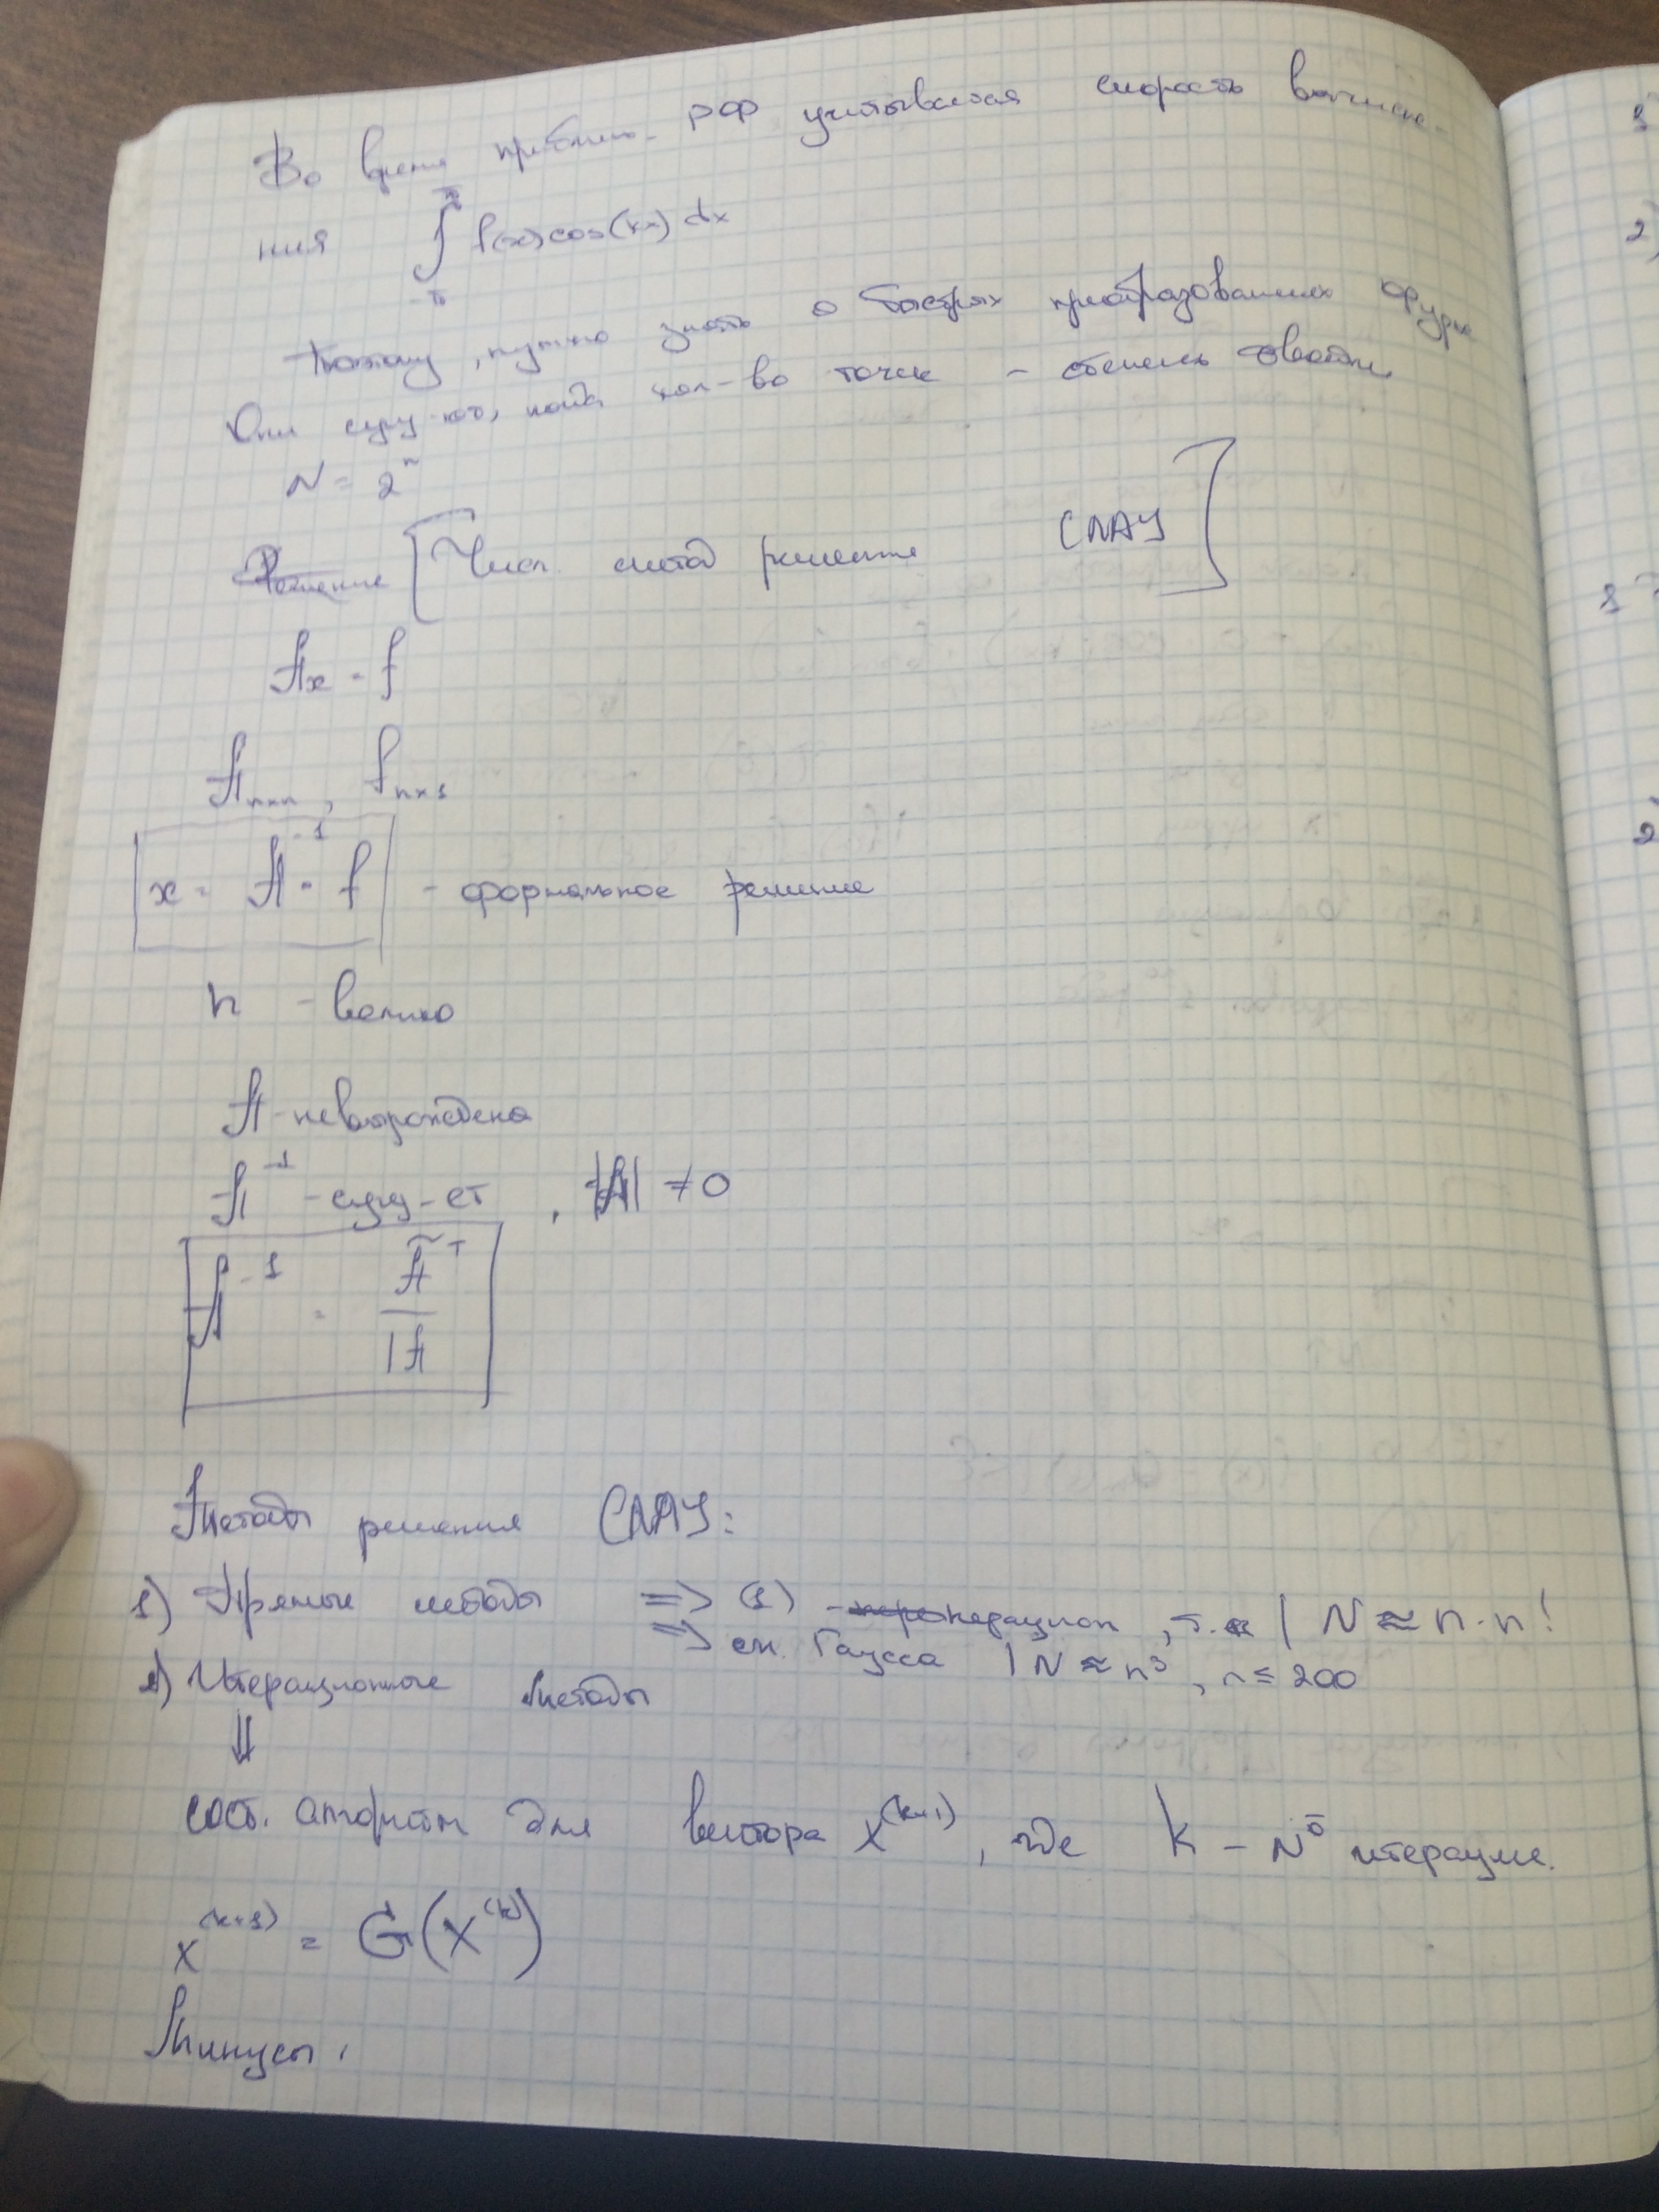 Во время приближ. РФ учитывается скорость вычисле-
ния ∫_{-π}^{π} f(x)cos(kx)dx
Поэтому, нужно знать о быстрых преобразованиях Фурье
Они сущ-ют, когда кол-во точек - степень двойки
N = 2^n
Решение [Числ. метод решение СЛАУ]
Ax = f
A_{n×n}, f_{n×1}
x = A^{-1} · f - формальное решение
n - велико
A - невырождена
A^{-1} - сущ-ет, |A| ≠ 0
A^{-1} = Ã^T / |A
Методы решения СЛАУ:
1) Прямые методы => (1) - нерацион, т.к | N ≈ n·n!
=> сп. Гаусса | N ≈ n^3, n ≤ 200
2) Итерационные Методы
⇓
сост. алгоритм для вектора x^{(k+1)}, где k - № итерации.
x^{(k+1)} = G(x^{(k)})
Минусы:
3
2)
3
2